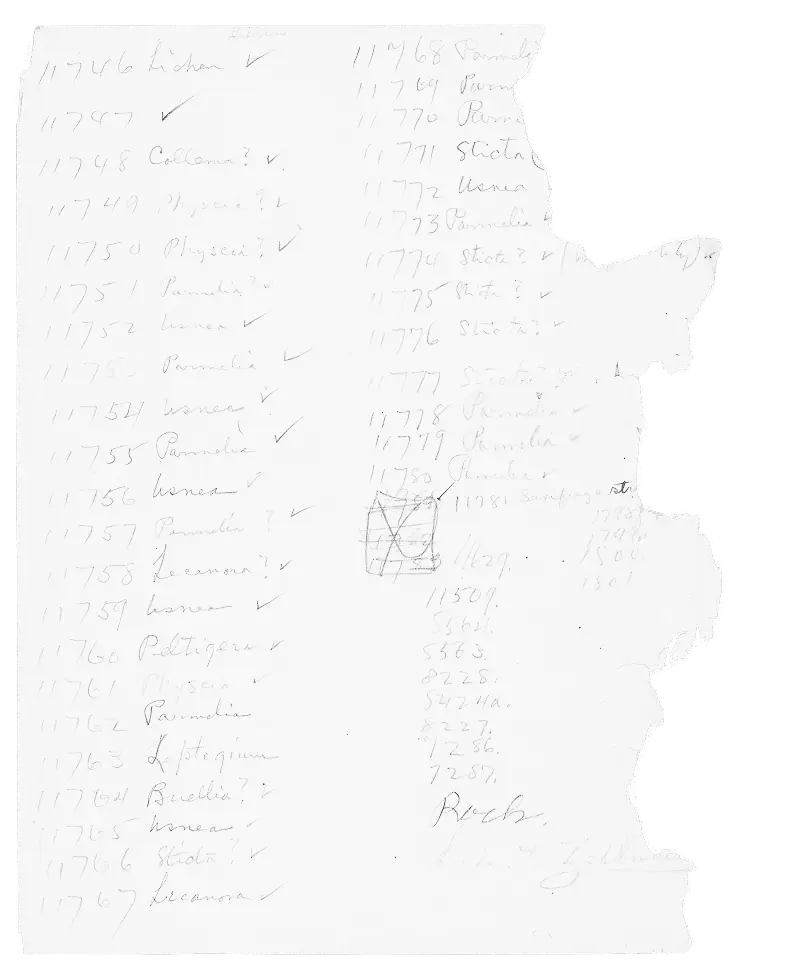 11746 Lichen ✓
11747 ✓
11748 Collema? ✓.
11749 Physcia? ✓
11750 Physcia? ✓
11751 Parmelia? ✓
11752 Usnea ✓
1175 Parmelia ✓
11754 Usnea ✓
11755 Parmelia ✓
11756 Usnea ✓
11757 Parmelia ? ✓
11758 Lecanora? ✓
11759 Usnea ✓
11760 Peltigera ✓
11761 Physcia ✓
11762 Parmelia
11763 Leptogium
11764 Buellia? ✓
11765 Usnea ✓
11766 Sticta? ✓
11767 Lecanora ✓
11768 Parmeli
11769 Parm
11770 Parme
11771 Sticta (
11772 Usnea
11773 Parmelia ✓
11774 Sticta? ✓
11775 Sticta? ✓
11776 Sticta? ✓
11777 Sticta?
11778 Parmelia ✓
11779 Parmelia ✓
11780 Parmelia ✓
11781
11629.
11509.
5563.
8228.
5424a.
8227.
7286.
7287.
Rock.